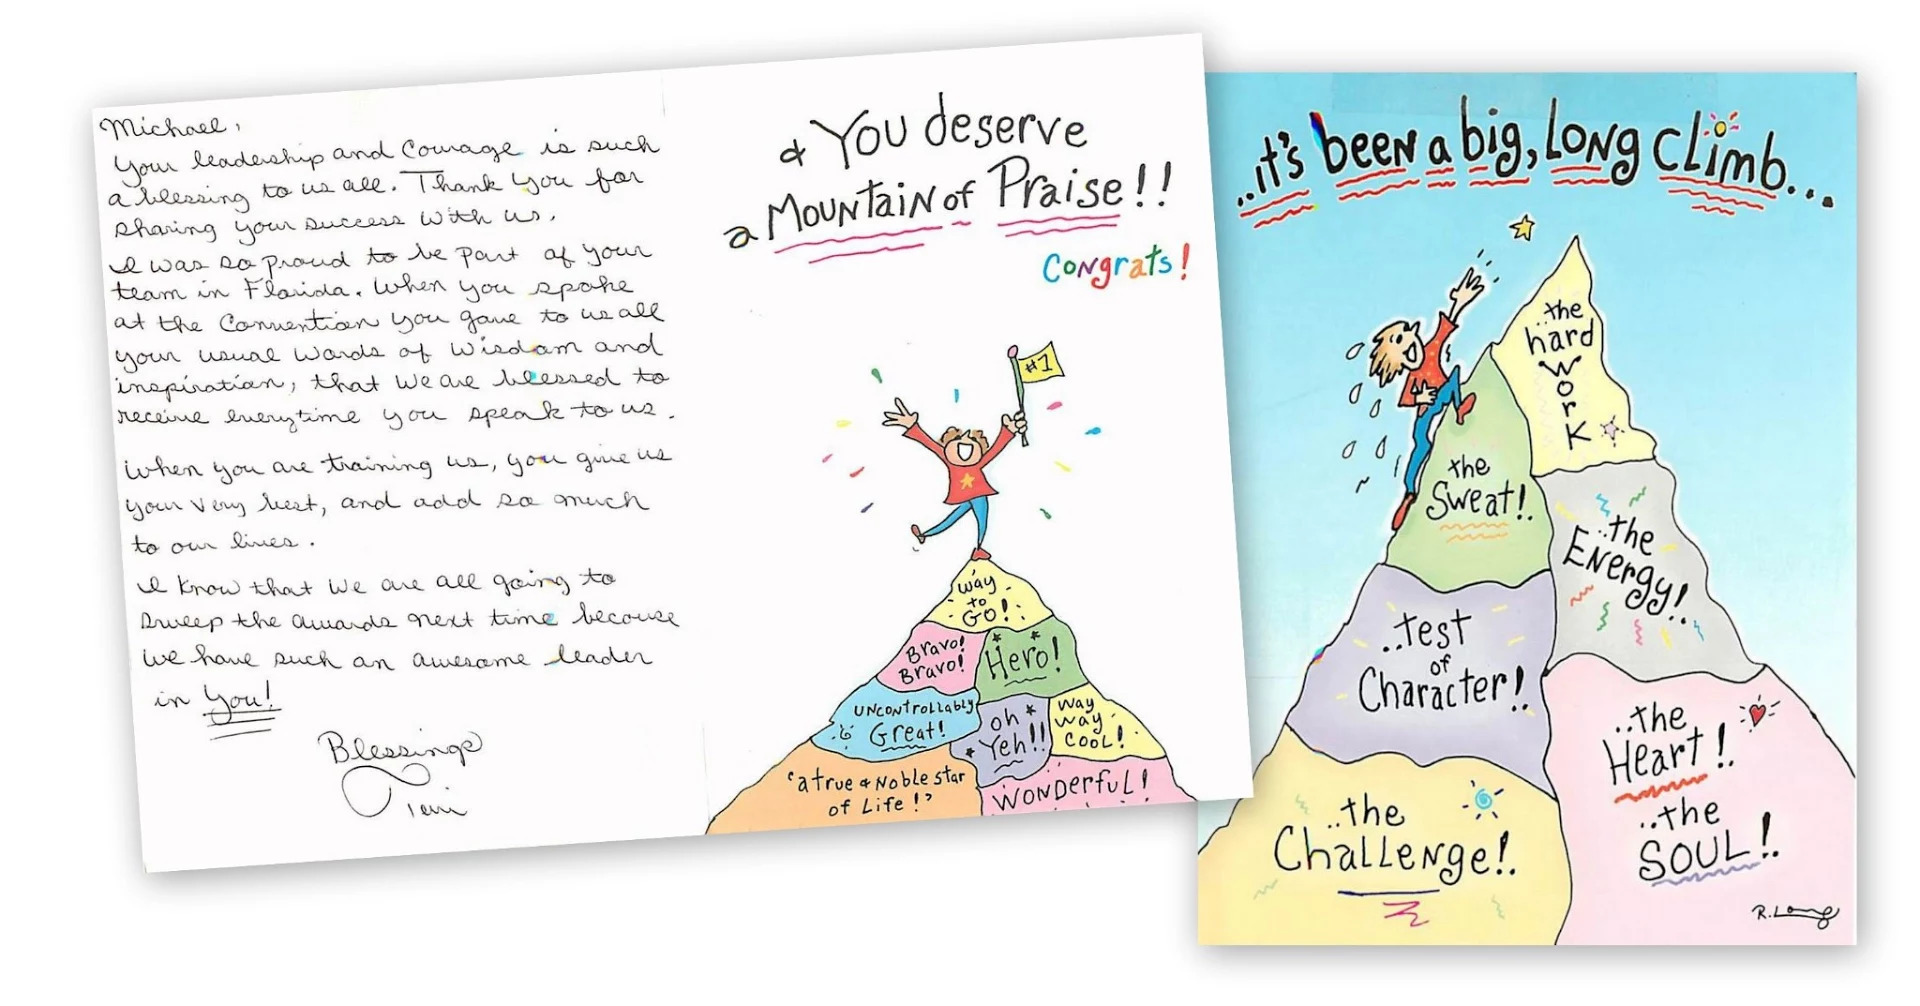 Michael,
Your leadership and Courage is such
a blessing to us all. Thank you for
sharing your success with us.
I was so proud to be part of your
team in Florida. When you spoke
at the Convention you gave to us all
your usual words of wisdom and
inspiration, that we are blessed to
receive everytime you speak to us.
When you are training us, you give us
your very best, and add so much
to our lives.
I know that we are all going to
sweep the awards next time because
we have such an awesome leader
in You!
Blessings
Terri
& You deserve
a Mountain of Praise!!
Congrats!
#1
way
to
GO!
Bravo!
Bravo!
Hero!
Uncontrollably
Great!
oh
Yeh!!
way
way
cool!
"a true & Noble star
of Life!"
Wonderful!
..it's been a big, long climb...
..the
hard
work
..the
Sweat!.
..the
Energy!.
..test
of
Character!.
..the
Heart!.
..the
Challenge!.
..the
Soul!.
R. Long